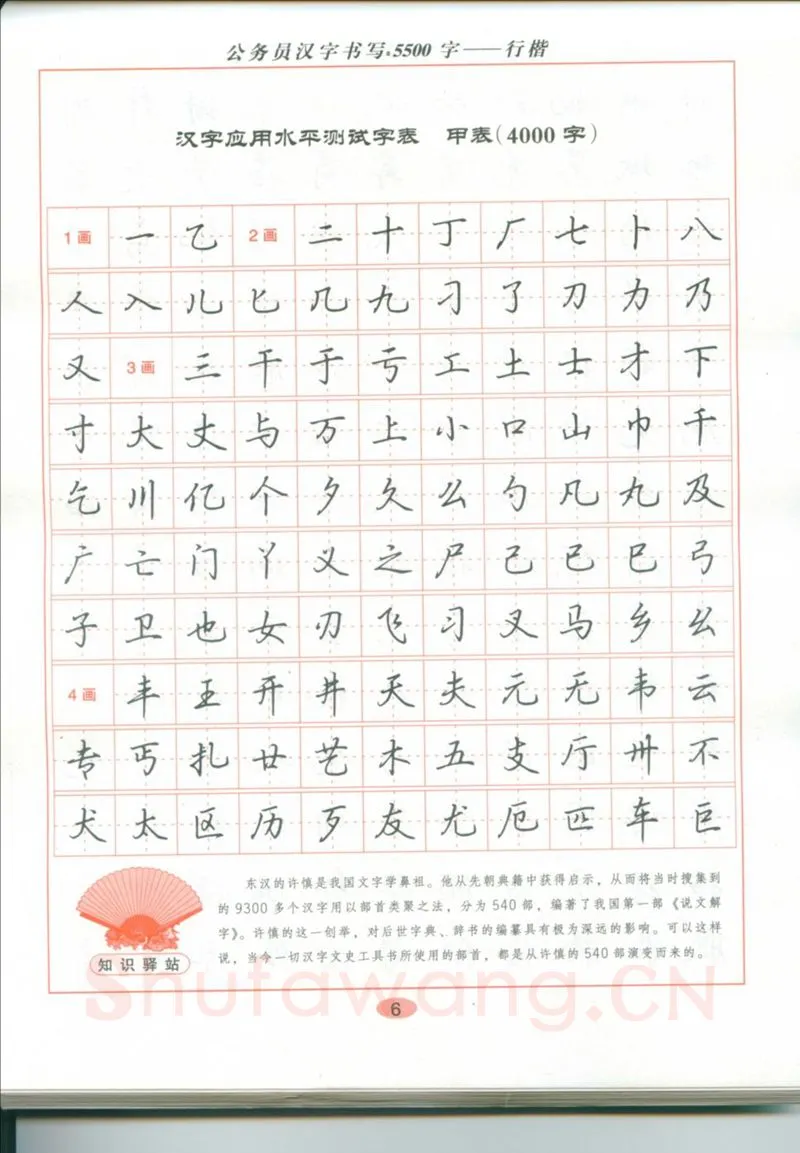 公务员汉字书写·5500字——行楷
汉字应用水平测试字表 甲表(4000字)
1画 一 乙 2画 二 十 丁 厂 七 卜 八
人 入 儿 匕 几 九 刁 了 刀 力 乃
又 3画 三 干 于 亏 工 土 士 才 下
寸 大 丈 与 万 上 小 口 山 巾 千
乞 川 亿 个 夕 久 么 勺 凡 丸 及
广 亡 门 丫 义 之 尸 己 已 巳 弓
子 卫 也 女 刃 飞 习 叉 马 乡 幺
4画 丰 王 开 井 天 夫 元 无 韦 云
专 丐 扎 廿 艺 木 五 支 厅 卅 不
犬 太 区 历 歹 友 尤 厄 匹 车 巨
东汉的许慎是我国文字学鼻祖。他从先朝典籍中获得启示，从而将当时搜集到
的9300多个汉字用以部首类聚之法，分为540部，编著了我国第一部《说文解
字》。许慎的这一创举，对后世字典、辞书的编纂具有极为深远的影响。可以这样
说，当今一切汉字文史工具书所使用的部首，都是从许慎的540部演变而来的。
知识驿站
Shufawang.CN
6